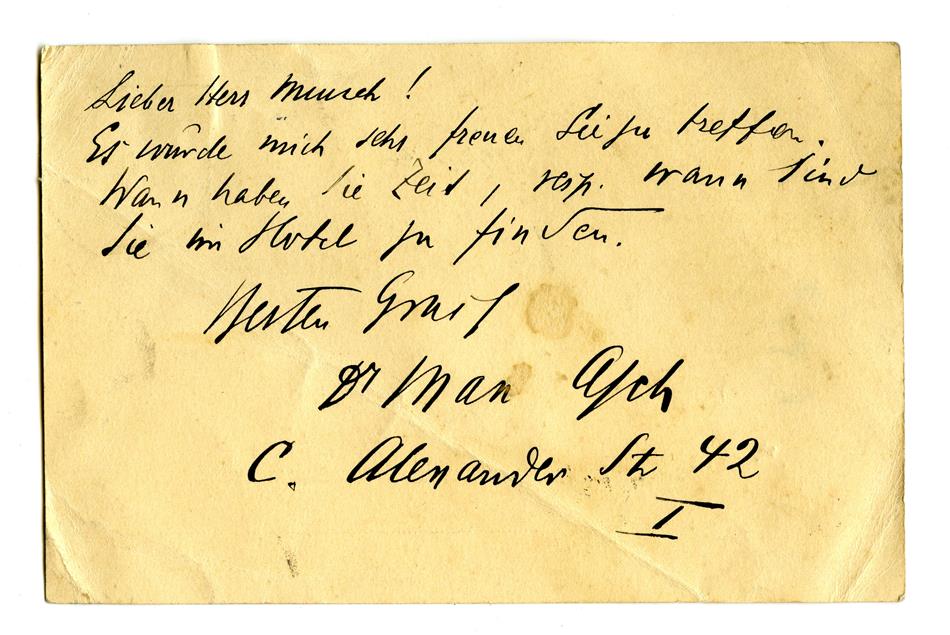 Lieber Herr Munsch!
Es würde mich sehr freuen Sie zu treffen.
Wann haben Sie Zeit, resp. wann sind
Sie im Hotel zu finden.
Besten Gruß
Dr Max Asch
C. Alexander Str 42
I